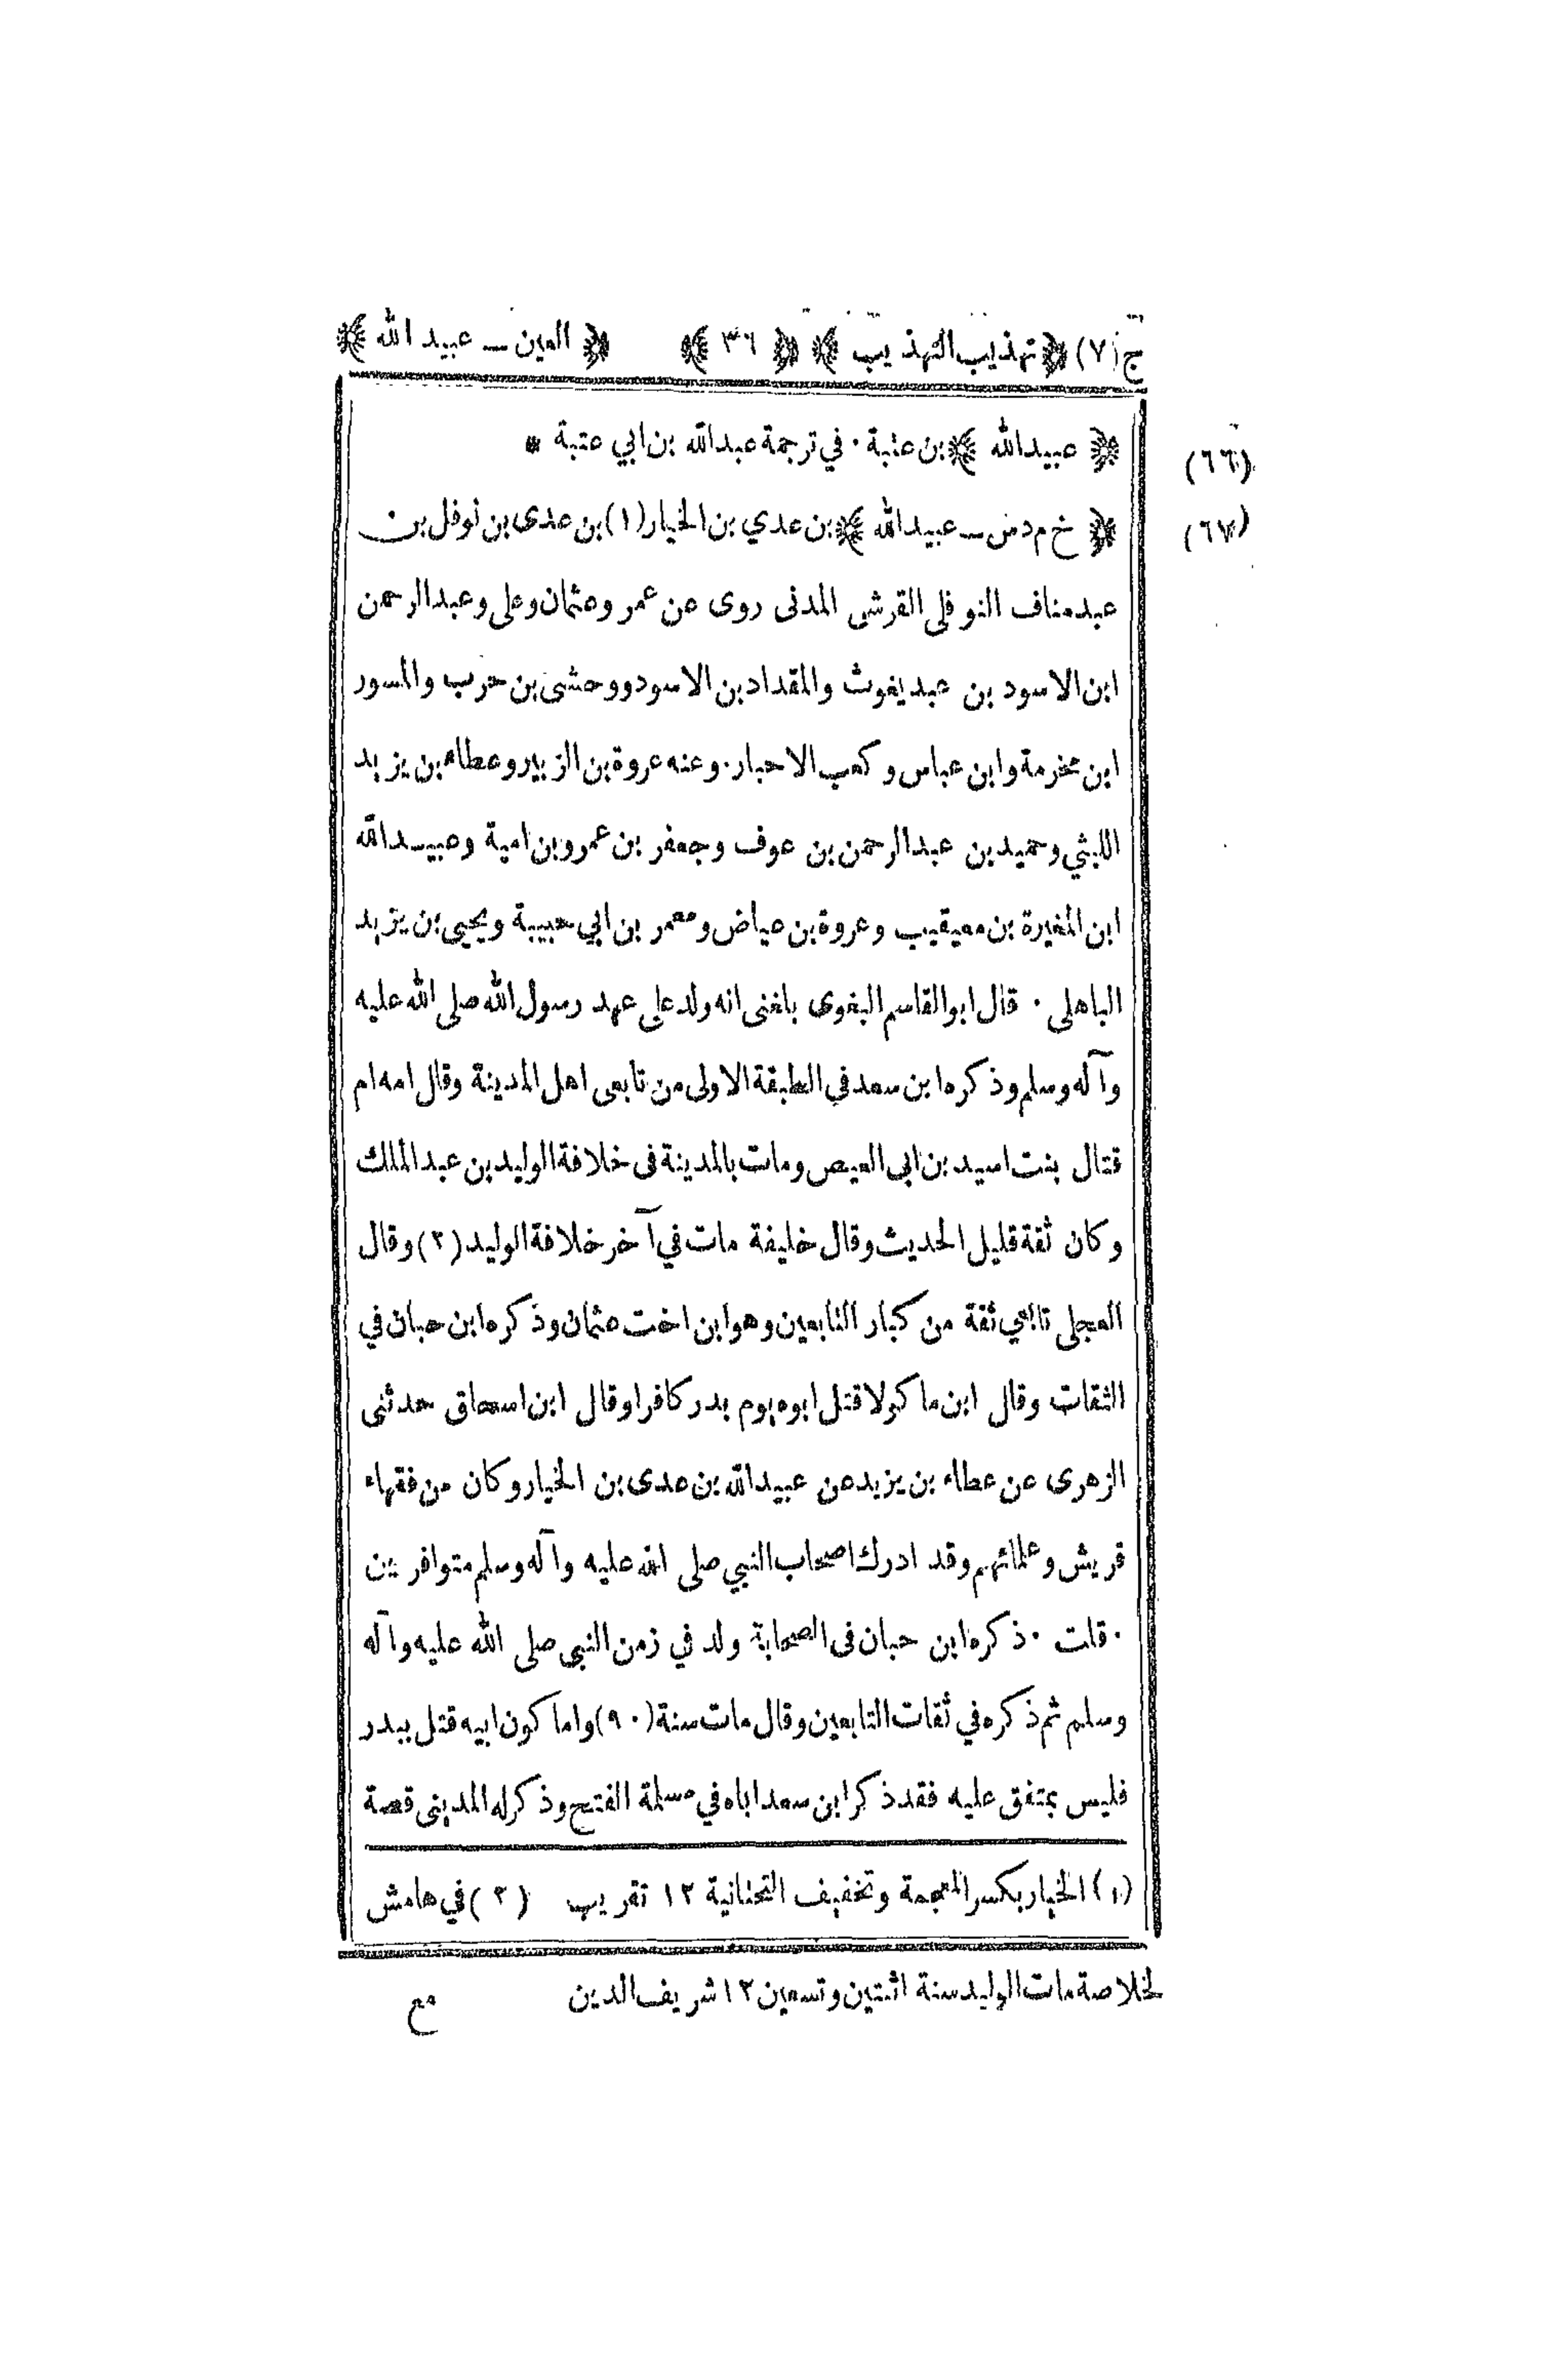 ج (٧) ﴿ تهذيب التهذيب ﴾ ﴿ ٣٦ ﴾ ﴿ العين ــ عبيد الله ﴾
(٦٦) ﴿ عبيدالله ﴾ بن عتبة ٠ في ترجمة عبدالله بن ابي عتبة *
(٦٧) ﴿ خ م د س ــ عبيدالله ﴾ بن عدي بن الخيار (١) بن عدى بن نوفل بن
عبدمناف النوفلى القرشى المدنى روى عن عمر وعثمان وعلى وعبدالرحمن
ابن الاسود بن عبديغوث والمقداد بن الاسود ووحشى بن حرب والمسور
ابن مخرمة وابن عباس وكعب الاحبار ٠ وعنه عروة بن الزبير وعطاء بن يزيد
الليثي وحميد بن عبدالرحمن بن عوف وجعفر بن عمرو بن امية وعبيدالله
ابن المغيرة بن معيقيب وعروة بن عياض ومعمر بن ابي حبيبة ويحيى بن يزيد
الباهلى ٠ قال ابوالقاسم البغوى بلغنى انه ولد على عهد رسول الله صلى الله عليه
وآله وسلم وذكره ابن سعد في الطبقة الاولى من تابعى اهل المدينة وقال امه ام
قتال بنت اسيد بن ابى العيص ومات بالمدينة فى خلافة الوليد بن عبدالملك
وكان ثقة قليل الحديث وقال خليفة مات في آخر خلافة الوليد (٢) وقال
العجلى تابعي ثقة من كبار التابعين وهو ابن اخت عثمان وذكره ابن حبان في
الثقات وقال ابن ماكولا قتل ابوه يوم بدر كافرا وقال ابن اسحاق حدثنى
الزهرى عن عطاء بن يزيد عن عبيدالله بن عدى بن الخيار وكان من فقهاء
قريش وعلمائهم وقد ادرك اصحاب النبي صلى الله عليه وآله وسلم متوافرين
٠ قلت ٠ ذكره ابن حبان فى الصحابة ولد في زمن النبى صلى الله عليه وآله
وسلم ثم ذكره في ثقات التابعين وقال مات سنة (٩٠) واما كون ابيه قتل ببدر
فليس بمتفق عليه فقد ذكر ابن سعد اباه في مسلمة الفتح وذكر له المدينى قصة
(١) الخيار بكسر المعجمة وتخفيف التحتانية ١٢ تقريب (٢) في هامش
لخلاصة مات الوليد سنة اثنتين وتسعين ١٢ شريف الدين
مع